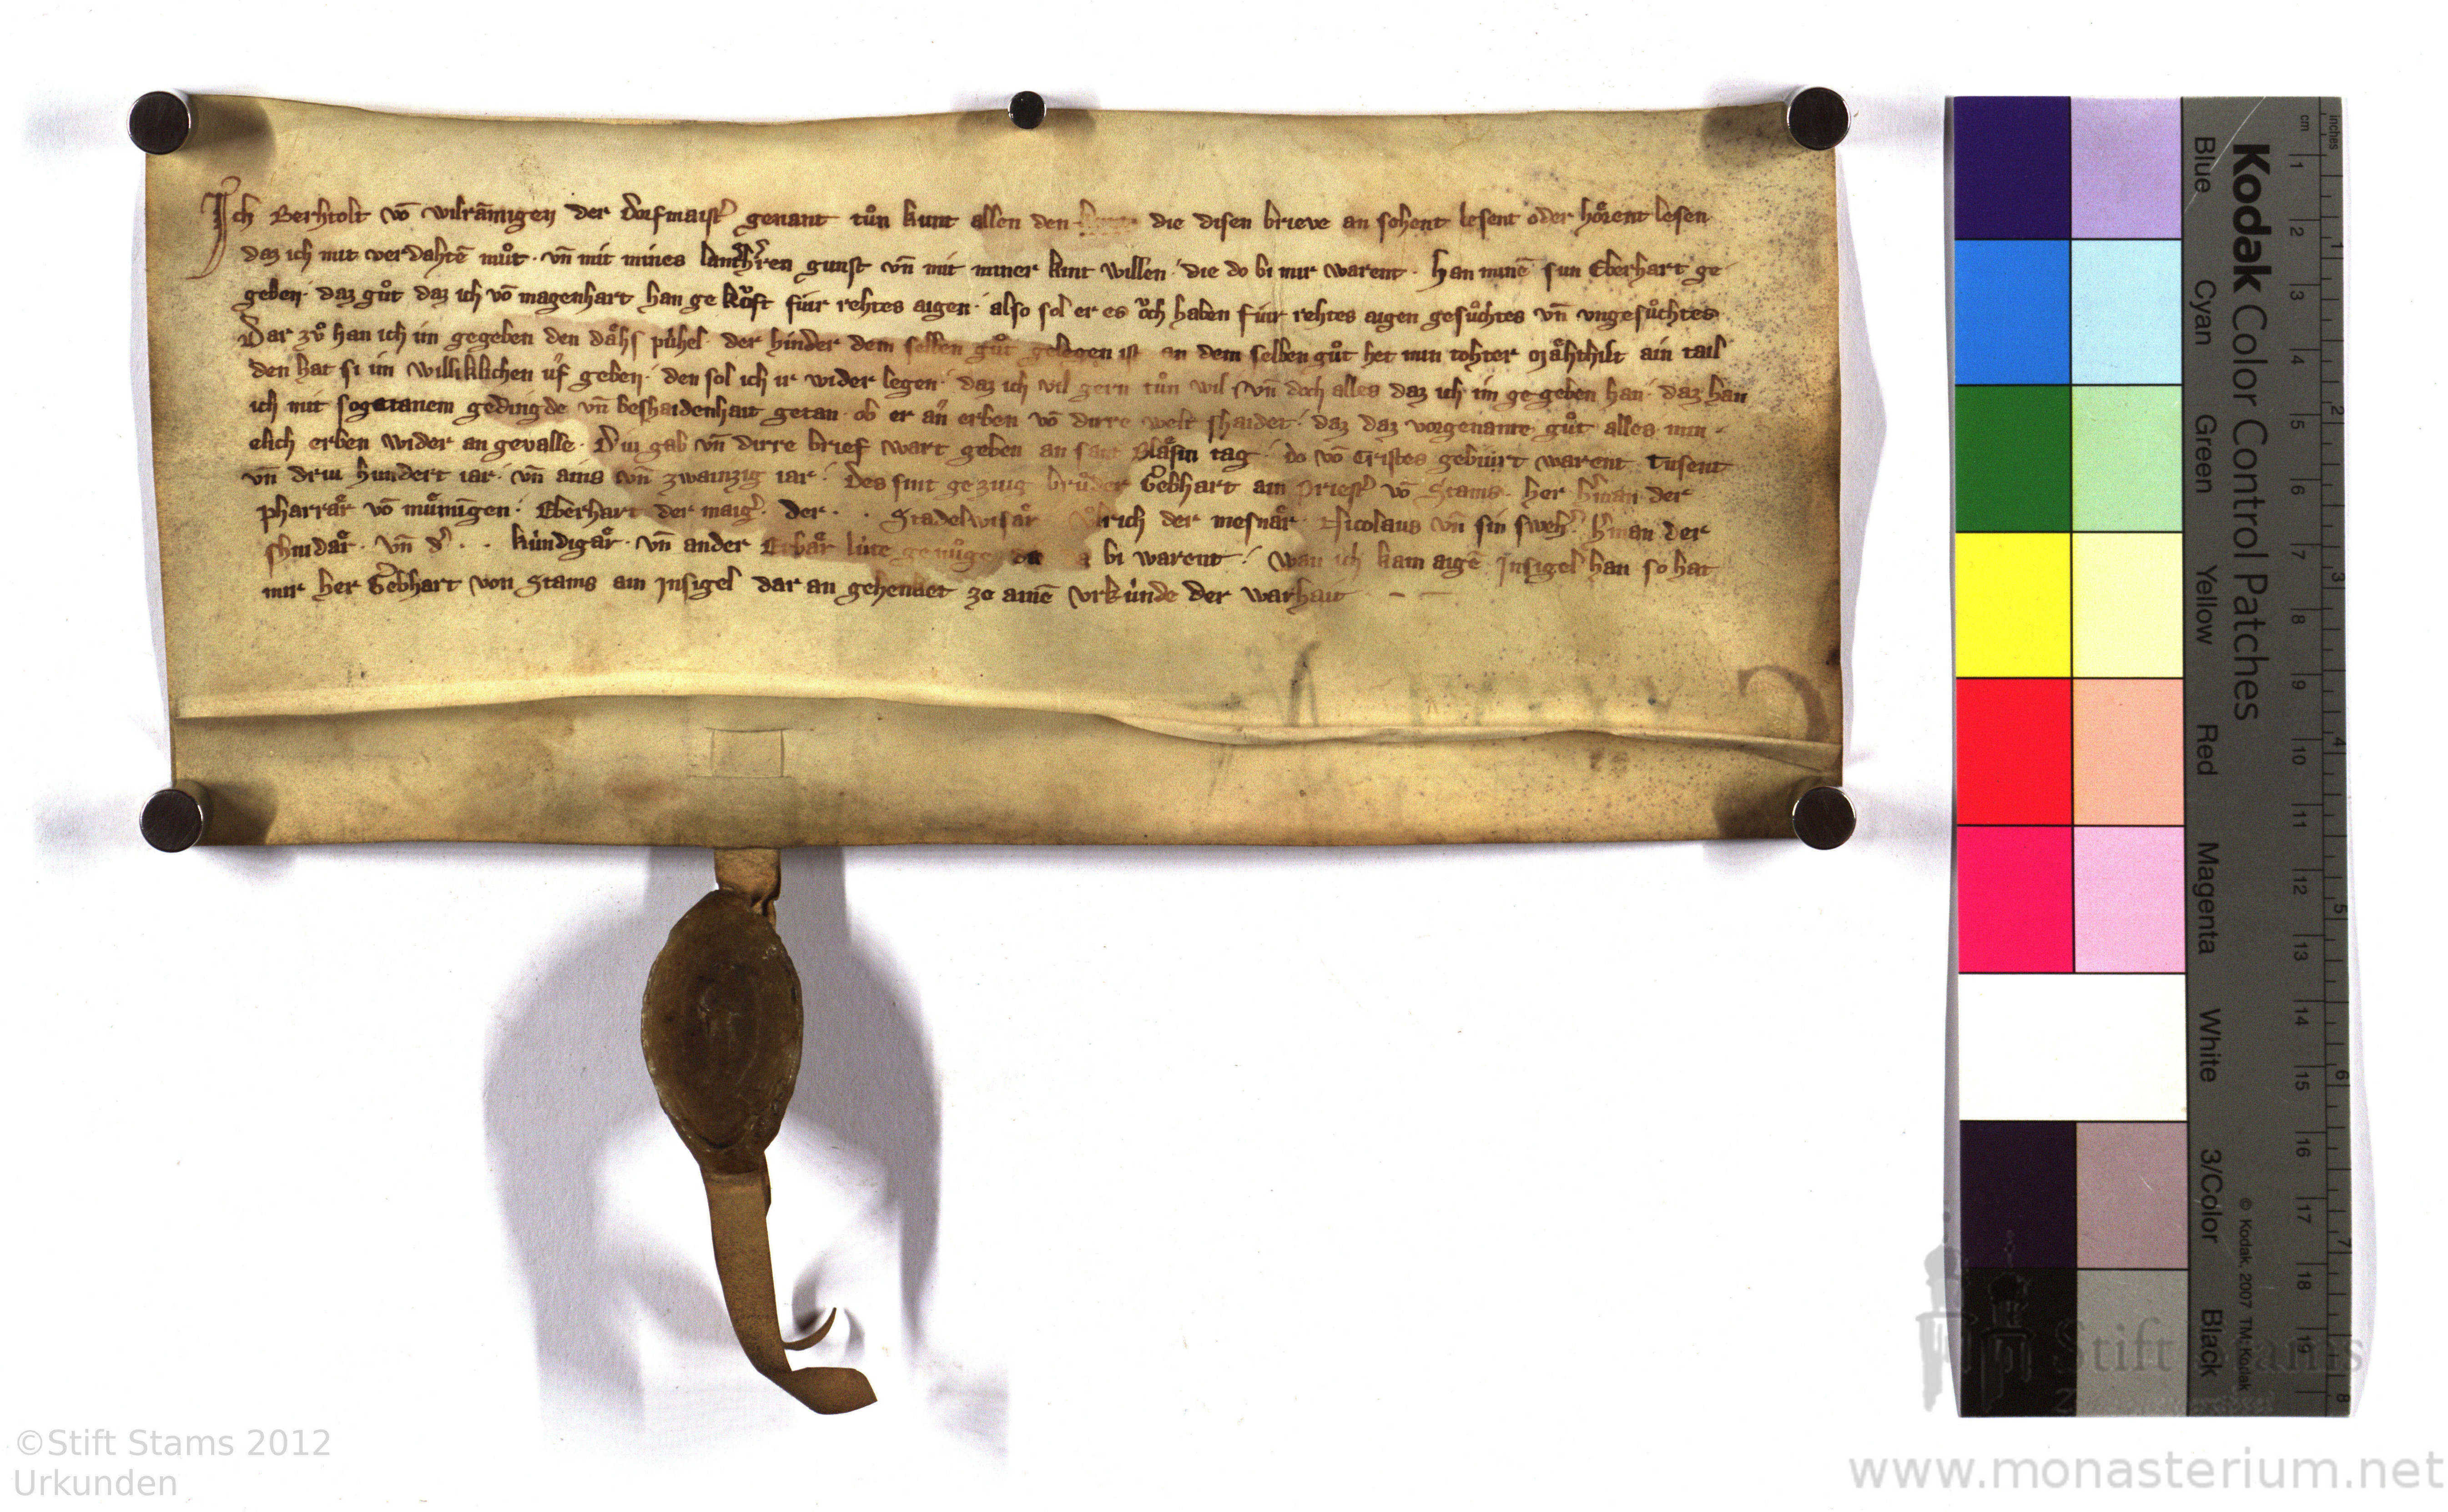 Ich Berhtolt vō wilrāmigen der dorfmaist͛ genant tůn kunt allen den die disen brieve an sehent lesent oder hoͤrent lesen
daz ich mit verdahtē můt · vn̄ mit mines lantherren gunst vn̄ mit miner kint willen · die do bi mir warent · han minē sun Eberhart ge
geben · daz gůt daz ich vō magenhart han ge koͮft fúir rehtes aigen · also sol er es oͮch haben fúir rehtes aigen gesůchtes vn̄ vngesůchtes
Dar zů han ich im gegeben den daͤhs púhel · der hinder dem selben gůt gelegen ist an dem selben gůt het min tohter maͤhthilt ain tail
den hat si im williklichen uf geben · den sol ich ir wider legen · daz ich vil gern tůn wil vn̄ doch alles daz ich im ge geben han · daz han
ich mit sogetanem gedingde vn̄ beshaidenhait getan · ob er an erben vō dirre welt shaidet · daz daz vorgenante gůt alles min
elich erben wider an gevalle · Diu gab vn̄ dirre brief wart geben an sant Blaͤsin tag · do vō Cristes gebúirt warent Tusent
vn̄ driu hundert iar · vn̄ ains vn̄ zwainzig iar · Des sint geziug brůder Gebhart ain priest͛ vō Stams · her h͛man der
pharraͤr vō muͤmigen · Eberhart der maig͛ · der · · Stadelwisaͤr Vͦlrich der mesnaͤr · Nicolaus vn̄ sin sweh͛ h͛man der
shnidaͤr · vn̄ d͛ · · kúndigaͤr · vn̄ ander Erbaͤr lúte genůge bi warent · wan ich kain aigē Jnsigel han so hat
mir her Gebhart von Stams ain jnsigel dar an gehenket ze ainē vrkúnde der warhait
Kodak Color Control Patches
Blue Cyan Green Yellow Red Magenta White 3/Color Black
© Kodak, 2007 TM: Kodak
cm 1 2 3 4 5 6 7 8 9 10 11 12 13 14 15 16 17 18 19
inches 1 2 3 4 5 6 7 8
Stift Stams
©Stift Stams 2012
Urkunden
www.monasterium.net